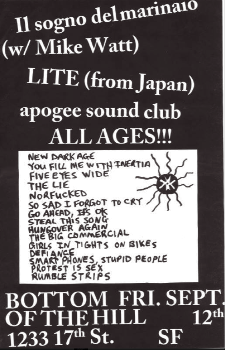 Il sogno del marinaio
(w/ Mike Watt)
LITE (from Japan)
apogee sound club
ALL AGES!!!
NEW DARK AGE
YOU FILL ME WITH INERTIA
FIVE EYES WIDE
THE LIE
NORFUCKED
SO SAD I FORGOT TO CRY
GO AHEAD, IT'S OK
STEAL THIS SONG
HUNGOVER AGAIN
THE BIG COMMERCIAL
GIRLS IN TIGHTS ON BIKES
DEFIANCE
SMART PHONES, STUPID PEOPLE
PROTEST IS SEX
RUMBLE STRIPS
BOTTOM FRI. SEPT.
OF THE HILL 12th
1233 17th St. SF